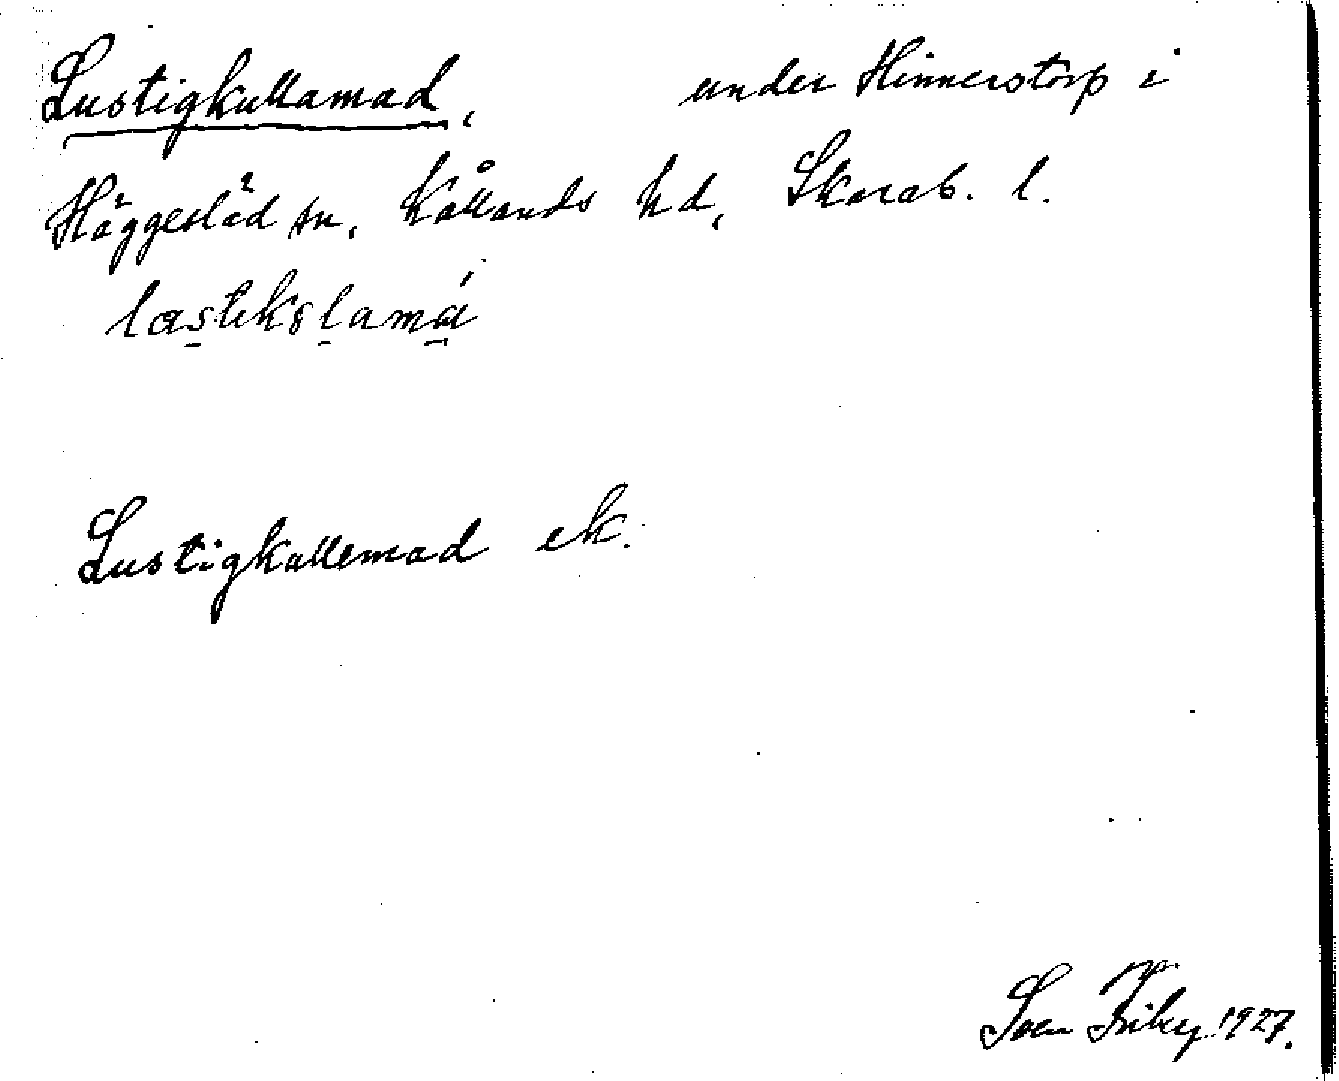 Lustigkullamad, under Hinnerstorp i
Häggesled sn, Kållands hd, Skarab. l.
Lustigkullemad ek.
Sven Friby 1927.